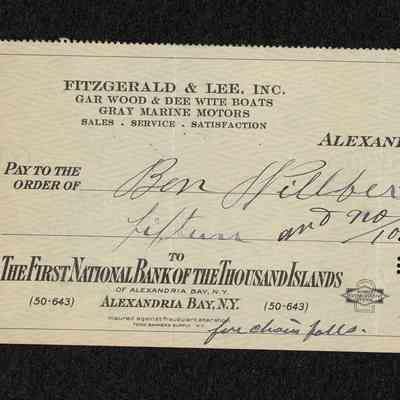 FITZGERALD & LEE, INC.
GAR WOOD & DEE WITE BOATS
GRAY MARINE MOTORS
SALES · SERVICE · SATISFACTION
ALEXAND
PAY TO THE
ORDER OF Ben Willber
fifteen and no/10
TO
THE FIRST NATIONAL BANK OF THE THOUSAND ISLANDS
OF ALEXANDRIA BAY, N.Y.
(50-643) ALEXANDRIA BAY, N.Y. (50-643)
insured against fraudulent
TODD BANKERS SUPPLY N.Y.
for chain falls.